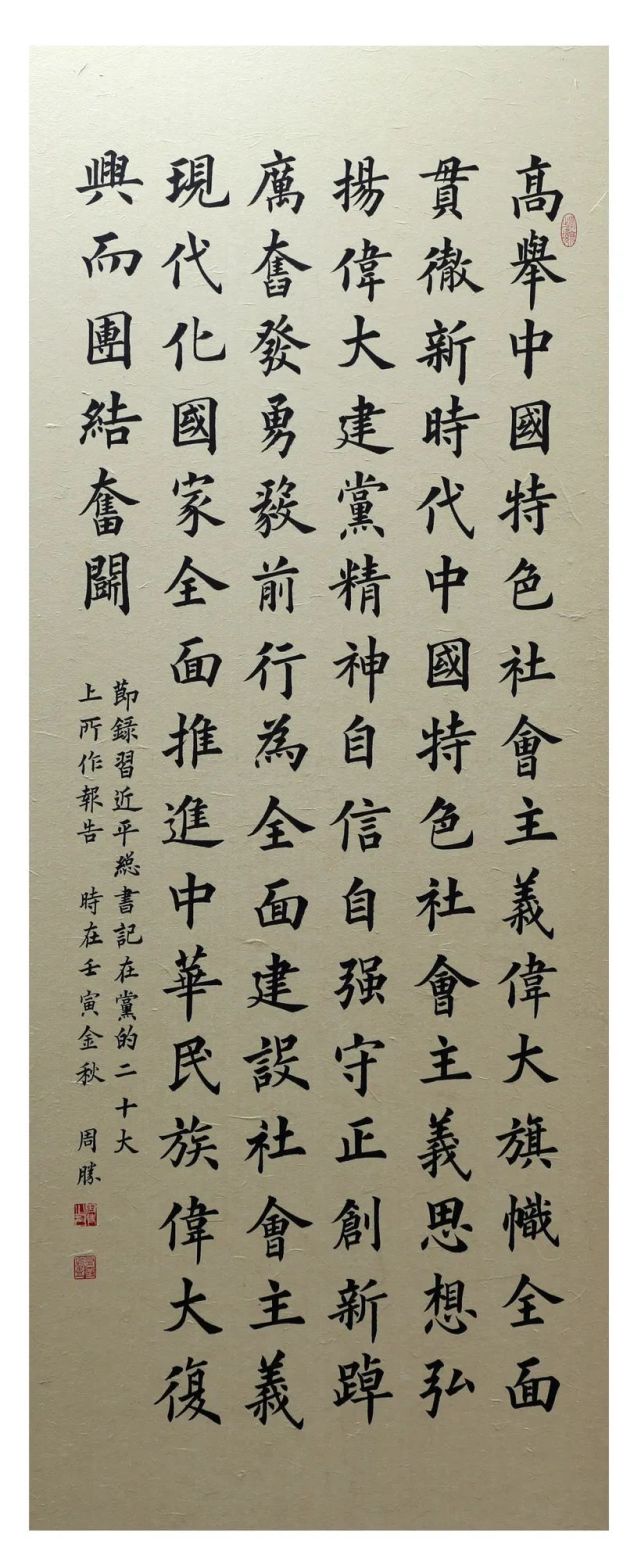 高舉中國特色社會主義偉大旗幟全面
貫徹新時代中國特色社會主義思想弘
揚偉大建黨精神自信自强守正創新踔
厲奮發勇毅前行為全面建設社會主義
現代化國家全面推進中華民族偉大復
興而團結奮鬪
節録習近平總書記在黨的二十大
上所作報告 時在壬寅金秋 周勝